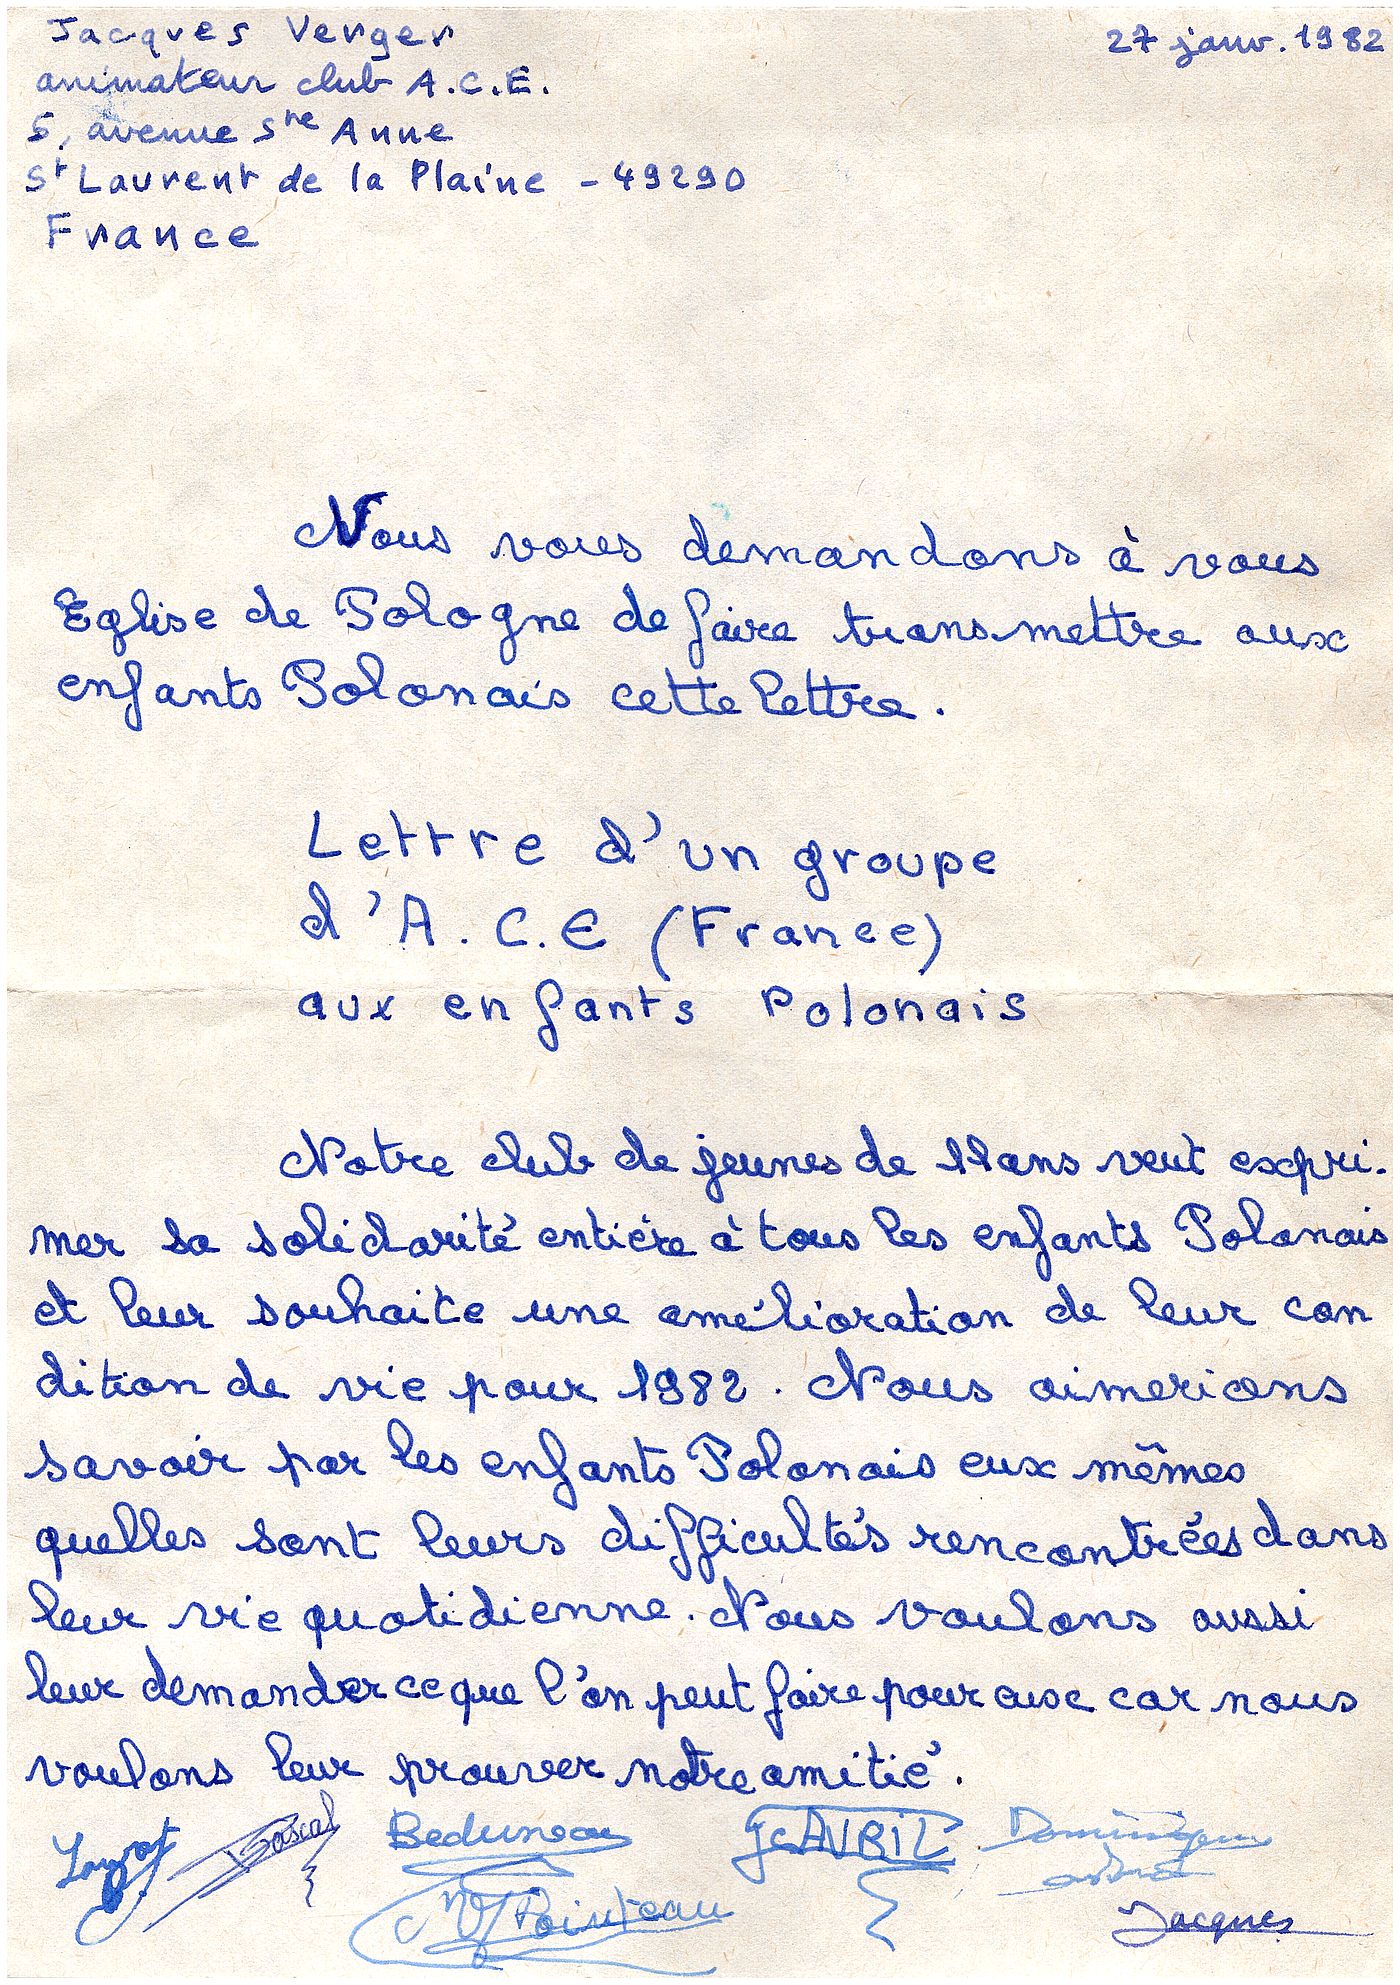 Jacques Verger
27 janv. 1982
animateur club A.C.E.
5, avenue Ste Anne
St Laurent de la Plaine - 49290
France
Nous vous demandons à vous
Eglise de Pologne de faire transmettre aux
enfants Polonais cette lettre.
Lettre d'un groupe
d'A.C.E (France)
aux enfants Polonais
Notre club de jeunes de 11 ans veut expri-
mer sa solidarité entière à tous les enfants Polonais
et leur souhaite une amélioration de leur con
dition de vie pour 1982. Nous aimerions
savoir par les enfants Polonais eux mêmes
quelles sont leurs difficultés rencontrées dans
leur vie quotidienne. Nous voulons aussi
leur demander ce que l'on peut faire pour eux car nous
voulons leur prouver notre amitié.
Pascal Beduneau JC AVRIL Dominique
Pointeau Jacques